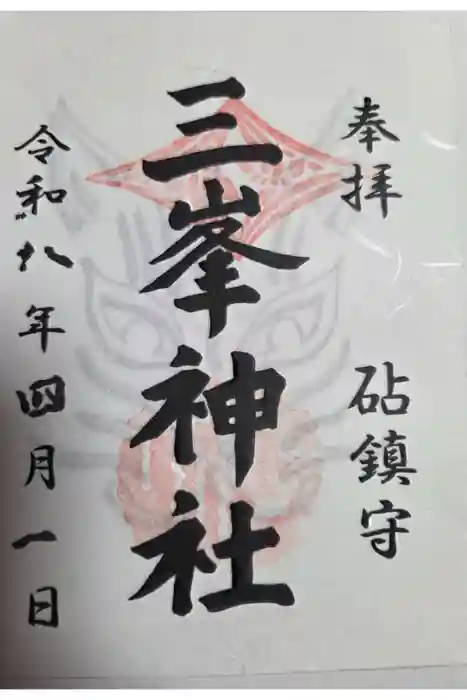 奉拝
砧鎮守
三峯神社
令和八年四月一日